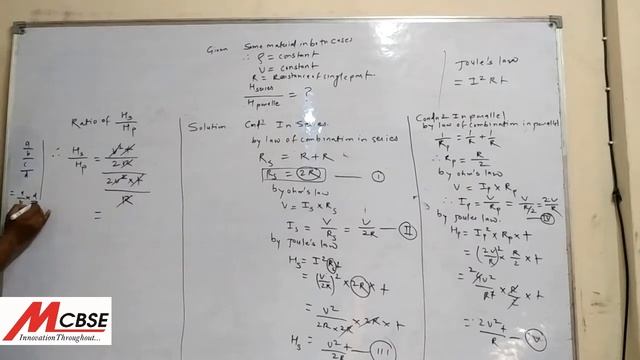 Given Same material in both cases
∴ ρ = constant
V = constant
R = Resistance of single part.
H series / H parallel = ?
Joule's law
= I² R t
Ratio of Hs/Hp
∴ Hs/Hp = V² t / 2R / 2V² × t / R
=
a/b / c/d
Solution Condn 1 In Series
by law of combination in series
Rs = R + R
Rs = (2R) — I
by ohm's law
V = Is × Rs
Is = V/Rs = V/2R — II
by Joule's law
Hs = I² Rs t
= (V/2R)² × 2R × t
= V² / 2R × 2R × 2R × t
Hs = V² t / 2R — III
Condn 2 In parallel
by law of combination in parallel
1/Rp = 1/R + 1/R
∴ Rp = R/2
by ohm's law
V = Ip × Rp
∴ Ip = V/Rp = V/R/2 = 2V/R — IV
by joules law.
Hp = Ip² × Rp × t
= (2V/R)² × R/2 × t
= 4V² / R² × R/2 × t
= 2V² t / R — V
MCBSE
Innovation Throughout...